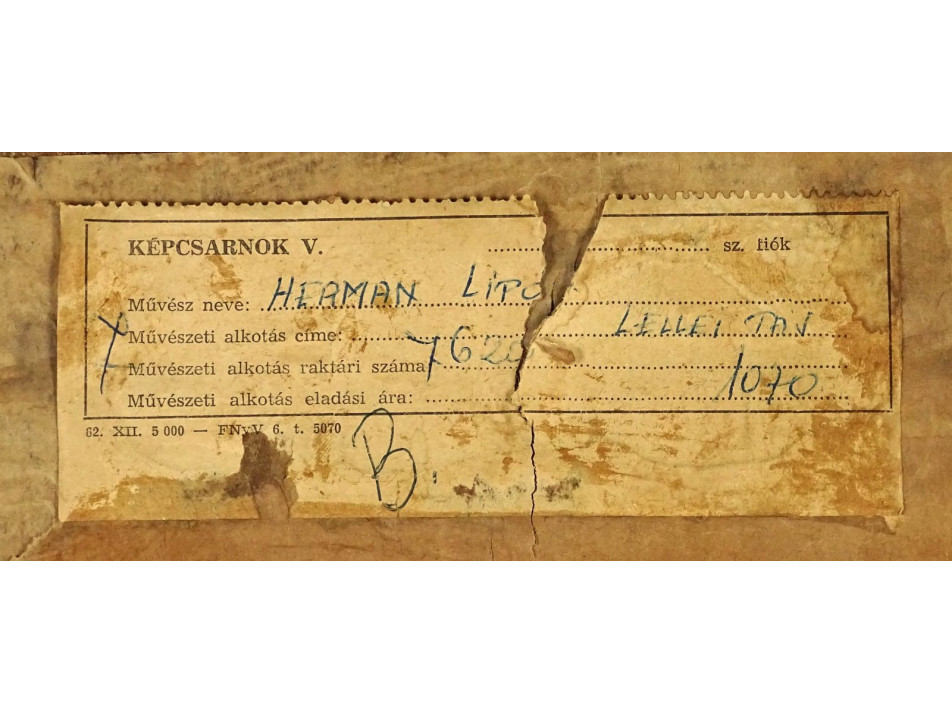 KÉPCSARNOK V. .................... sz. fiók
Művész neve: HERMAN LIPO
X Művészeti alkotás címe: LELLEI TÁJ
Művészeti alkotás raktári száma 7620
Művészeti alkotás eladási ára: 1070
62. XII. 5 000 — FNyV 6. t. 5070
B.